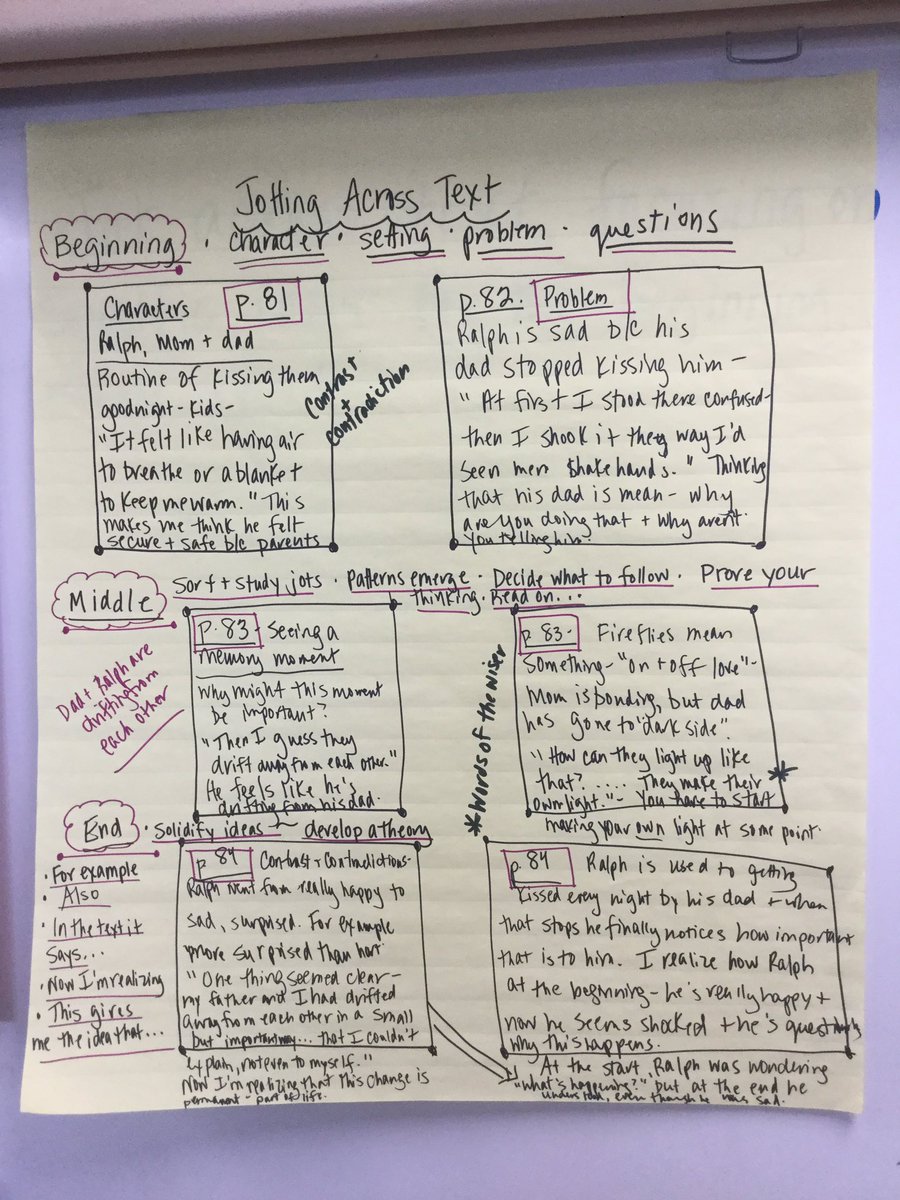 Jotting Across Text
Beginning · character · setting · problem · questions
Characters p. 81
Ralph, Mom + dad
Routine of kissing them
goodnight - kids -
"It felt like having air
to breathe or a blanket
to keep me warm." This
makes me think he felt
secure + safe b/c parents
Contrast
+
contradiction
p. 82. Problem
Ralph is sad b/c his
dad stopped kissing him -
"At first I stood there confused -
then I shook it they way I'd
seen men shake hands." Thinking
that his dad is mean - why
are you doing that + why aren't
you telling him.
Middle
Sort + study jots · patterns emerge · Decide what to follow · Prove your
thinking · Read on...
Dad + Ralph are
drifting from
each other
p. 83 - Seeing a
memory moment
Why might this moment
be important?
"Then I guess they
drift away from each other."
He feels like he's
drifting from his dad.
*Words of the Wiser
p. 83 - Fireflies mean
something - "on + off love" -
Mom is bonding, but dad
has gone to "dark side".
"How can they light up like
that? ..... They make their *
own light." - You have to start
making your own light at some point.
End
· Solidify ideas - develop a theory
· For example
· Also
· In the text it
says...
· Now I'm realizing
· This gives
me the idea that...
p. 84 Contrast + Contradictions -
Ralph went from really happy to
sad, surprised. For example
"more surprised than hurt"
"One thing seemed clear -
my father and I had drifted
away from each other in a small
but important way... that I couldn't
explain, not even to myself."
Now I'm realizing that this change is
permanent - part of life.
p. 84 Ralph is used to getting
kissed every night by his dad + when
that stops he finally notices how important
that is to him. I realize how Ralph
at the beginning - he's really happy +
now he seems shocked + he's questioning
why this happens.
At the start, Ralph was wondering
"what's happening?" but at the end he
understood, even though he was sad.